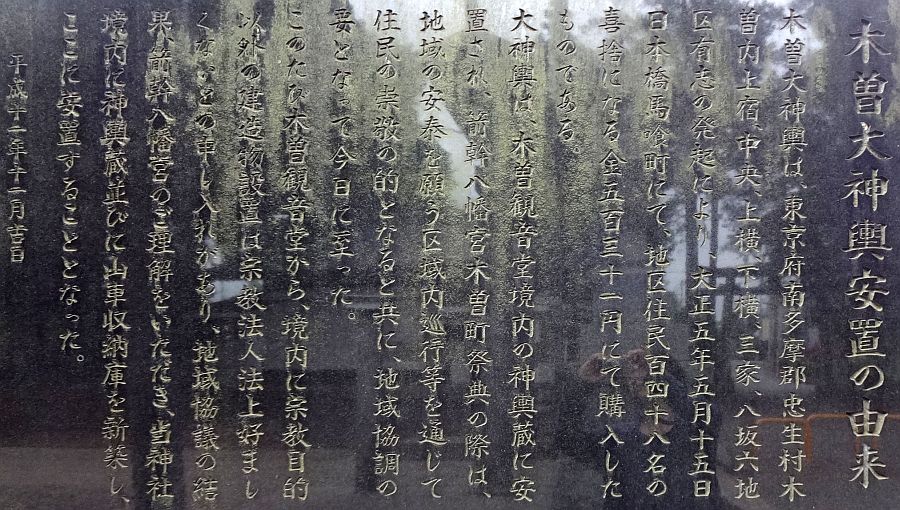 木曽大神輿安置の由来
木曽大神輿は、東京府南多摩郡忠生村木
曽内上宿、中央、上横、下横、三家、八坂六地
区有志の発起により、大正五年五月十五日
日本橋馬喰町にて、地区住民百四十八名の
喜捨になる金五百三十一円にて購入した
ものである。
大神輿は、木曽観音堂境内の神輿蔵に安
置され、箭幹八幡宮木曽町祭典の際は、
地域の安泰を願う区域内巡行等を通じて
住民の崇敬の的となると共に、地域協調の
要となって今日に至った。
このたび木曽観音堂から、境内に宗教目的
以外の建造物設置は宗教法人法上好まし
くないとの申し入れがあり、地域協議の結
果、箭幹八幡宮のご理解をいただき、当神社
境内に神輿蔵並びに山車収納庫を新築し、
ここに安置することとなった。
平成十一年十一月吉日